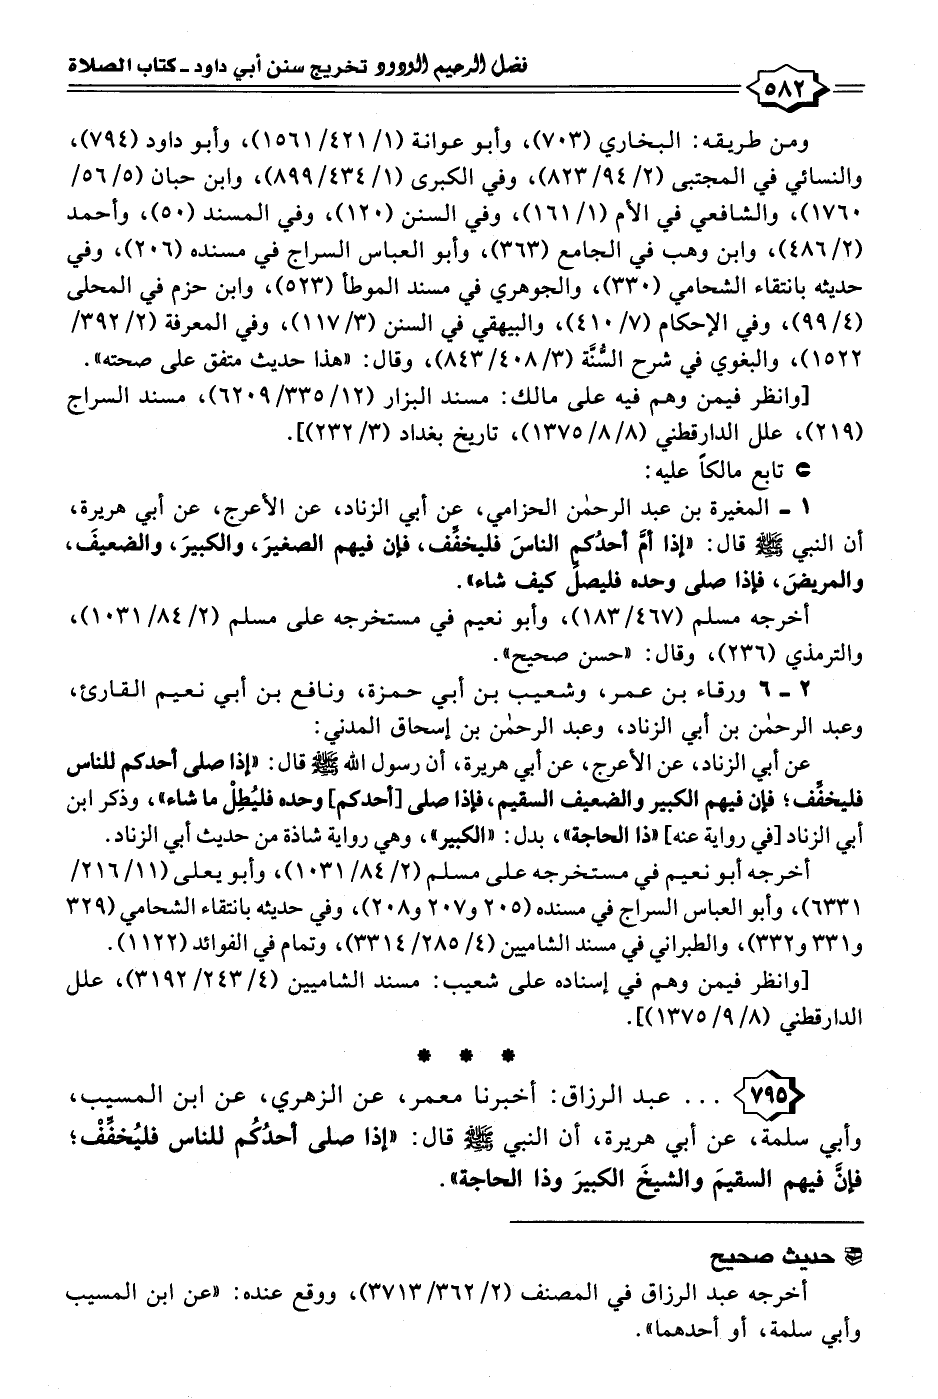 فضل الرحيم الودود تخريج سنن أبي داود - كتاب الصلاة
٥٨٢
ومن طريقه: البخاري (٧٠٣)، وأبو عوانة (١/ ٤٢١/ ١٥٦١)، وأبو داود (٧٩٤)،
والنسائي في المجتبى (٢/ ٩٤/ ٨٢٣)، وفي الكبرى (١/ ٤٣٤/ ٨٩٩)، وابن حبان (٥/ ٥٦/
١٧٦٠)، والشافعي في الأم (١/ ١٦١)، وفي السنن (١٢٠)، وفي المسند (٥٠)، وأحمد
(٢/ ٤٨٦)، وابن وهب في الجامع (٣٦٣)، وأبو العباس السراج في مسنده (٢٠٦)، وفي
حديثه بانتقاء الشحامي (٣٣٠)، والجوهري في مسند الموطأ (٥٢٣)، وابن حزم في المحلى
(٤/ ٩٩)، وفي الإحكام (٧/ ٤١٠)، والبيهقي في السنن (٣/ ١١٧)، وفي المعرفة (٢/ ٣٩٢/
١٥٢٢)، والبغوي في شرح السُّنَّة (٣/ ٤٠٨/ ٨٤٣)، وقال: «هذا حديث متفق على صحته».
[وانظر فيمن وهم فيه على مالك: مسند البزار (١٢/ ٣٣٥/ ٦٢٠٩)، مسند السراج
(٢١٩)، علل الدارقطني (٨/ ٨/ ١٣٧٥)، تاريخ بغداد (٣/ ٢٣٢)].
تابع مالكاً عليه:
١ - المغيرة بن عبد الرحمٰن الحزامي، عن أبي الزناد، عن الأعرج، عن أبي هريرة،
أن النبي ﷺ قال: «إذا أمَّ أحدُكم الناسَ فليخفِّف، فإن فيهم الصغيرَ، والكبيرَ، والضعيفَ،
والمريضَ، فإذا صلى وحده فليصلِّ كيف شاء».
أخرجه مسلم (٤٦٧/ ١٨٣)، وأبو نعيم في مستخرجه على مسلم (٢/ ٨٤/ ١٠٣١)،
والترمذي (٢٣٦)، وقال: «حسن صحيح».
٢ - ٦ ورقاء بن عمر، وشعيب بن أبي حمزة، ونافع بن أبي نعيم القارئ،
وعبد الرحمٰن بن أبي الزناد، وعبد الرحمٰن بن إسحاق المدني:
عن أبي الزناد، عن الأعرج، عن أبي هريرة، أن رسول الله ﷺ قال: «إذا صلى أحدكم للناس
فليخفِّف؛ فإن فيهم الكبير والضعيف السقيم، فإذا صلى [أحدكم] وحده فليُطِلْ ما شاء»، وذكر ابن
أبي الزناد [في رواية عنه] «ذا الحاجة»، بدل: «الكبير»، وهي رواية شاذة من حديث أبي الزناد.
أخرجه أبو نعيم في مستخرجه على مسلم (٢/ ٨٤/ ١٠٣١)، وأبو يعلى (١١/ ٢١٦/
٦٣٣١)، وأبو العباس السراج في مسنده (٢٠٥ و٢٠٧ و٢٠٨)، وفي حديثه بانتقاء الشحامي (٣٢٩
و٣٣١ و٣٣٢)، والطبراني في مسند الشاميين (٤/ ٢٨٥/ ٣٣١٤)، وتمام في الفوائد (١١٢٢).
[وانظر فيمن وهم في إسناده على شعيب: مسند الشاميين (٤/ ٢٤٣/ ٣١٩٢)، علل
الدارقطني (٨/ ٩/ ١٣٧٥)].
* * *
٧٩٥ ... عبد الرزاق: أخبرنا معمر، عن الزهري، عن ابن المسيب،
وأبي سلمة، عن أبي هريرة، أن النبي ﷺ قال: «إذا صلى أحدُكُم للناس فليُخفِّفْ؛
فإنَّ فيهم السقيمَ والشيخَ الكبيرَ وذا الحاجة».
حديث صحيح
أخرجه عبد الرزاق في المصنف (٢/ ٣٦٢/ ٣٧١٣)، ووقع عنده: «عن ابن المسيب
وأبي سلمة، أو أحدهما».